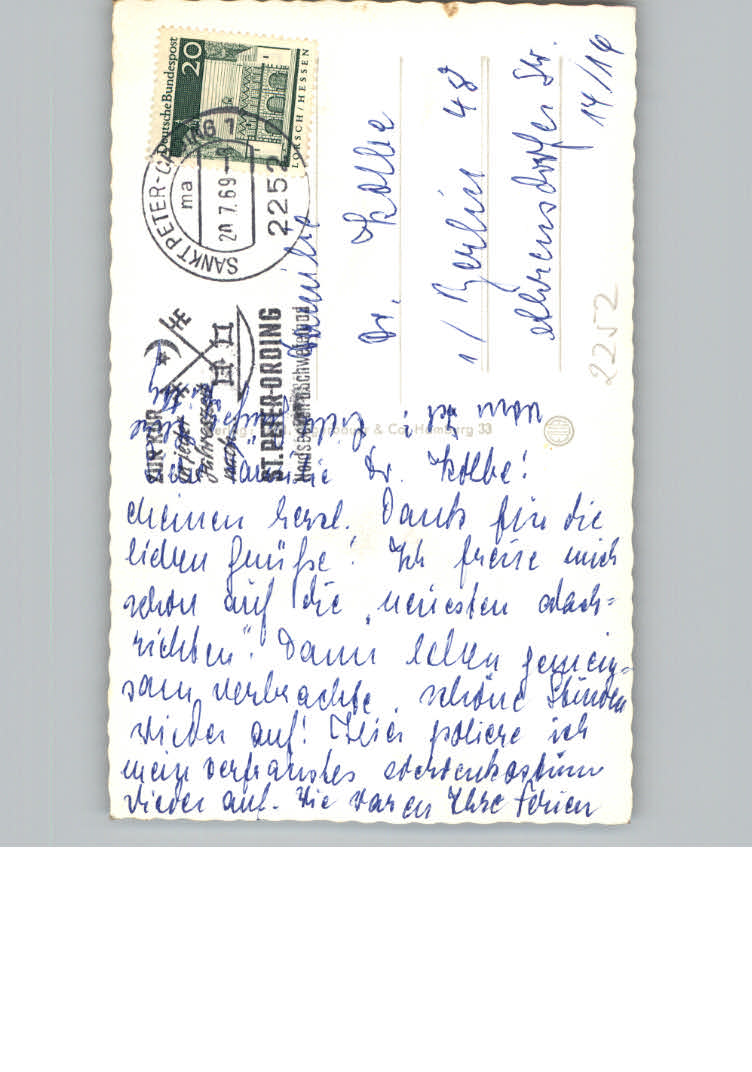 Deutsche Bundespost
20
LORSCH/HESSEN
SANKT PETER-ORDING 1
ma
20.7.69
2252
ZUR KUR
zu jeder
Jahreszeit
nach
ST. PETER-ORDING
Nordseebad u. Schwefelbad
Familie
Dr. Kolbe
1/ Berlin 48
Ahrensdorfer Str.
14/14
2252
& Co. Hamburg 33
Dr. Kolbe!
Meinen herzl. Dank für die
lieben Grüße! Ich freue mich
schon auf die "neuesten Nach-
richten". Dann leben gemein-
sam verbrachte, schöne Stunden
wieder auf! Hier poliere ich
mein verfranstes Nervenkostüm
wieder auf. Wie waren Ihre Ferien